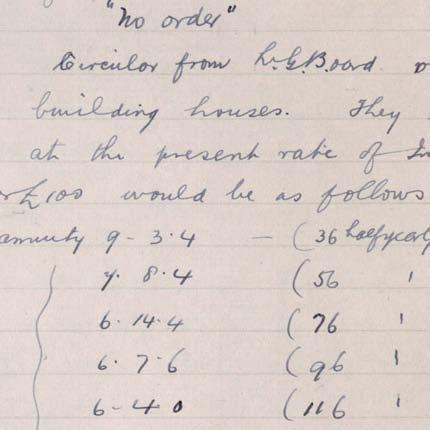 "No order"
Circular from L.G.Board
building houses. They
at the present rate of
£100 would be as follows
annuity 9 - 3.4 — (36 halfyearly
7. 8.4 (56 "
6. 14.4 (76 "
6. 7.6 (96 "
6 - 4 0 (116 "